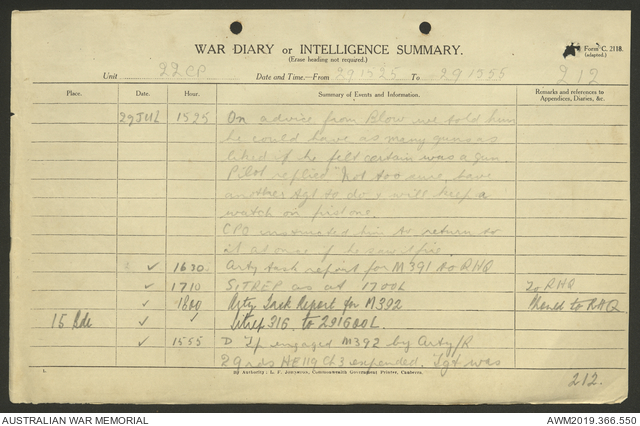 Form C. 2118.
(adapted.)
WAR DIARY or INTELLIGENCE SUMMARY.
(Erase heading not required.)
Unit 22 CP Date and Time.—From 291525 To 291555 212
Place. Date. Hour. Summary of Events and Information. Remarks and references to Appendices, Diaries, &c.
29 JUL 1525 On advice from Blow we told him
he could have as many guns as
liked if he felt certain was a gun.
Pilot replied "Not too sure, have
another tgt to do & will keep a
watch on first one.
CPO instructed him to return to
it at once if he saw it fire.
✓ 1630 Arty task report for M391 to RHQ
✓ 1710 SITREP as at 1700L To RHQ
✓ 1800 Arty Task Report for M392 Phoned to RHQ
15 Bde ✓ ✓ Sitrep 316 to 291600L.
✓ 1555 D Tp engaged M392 by Arty/R
29 rds HE 119 Ch 3 expended. Tgt was
1. By Authority: L. F. Johnston, Commonwealth Government Printer, Canberra.
212.
AUSTRALIAN WAR MEMORIAL AWM2019.366.550